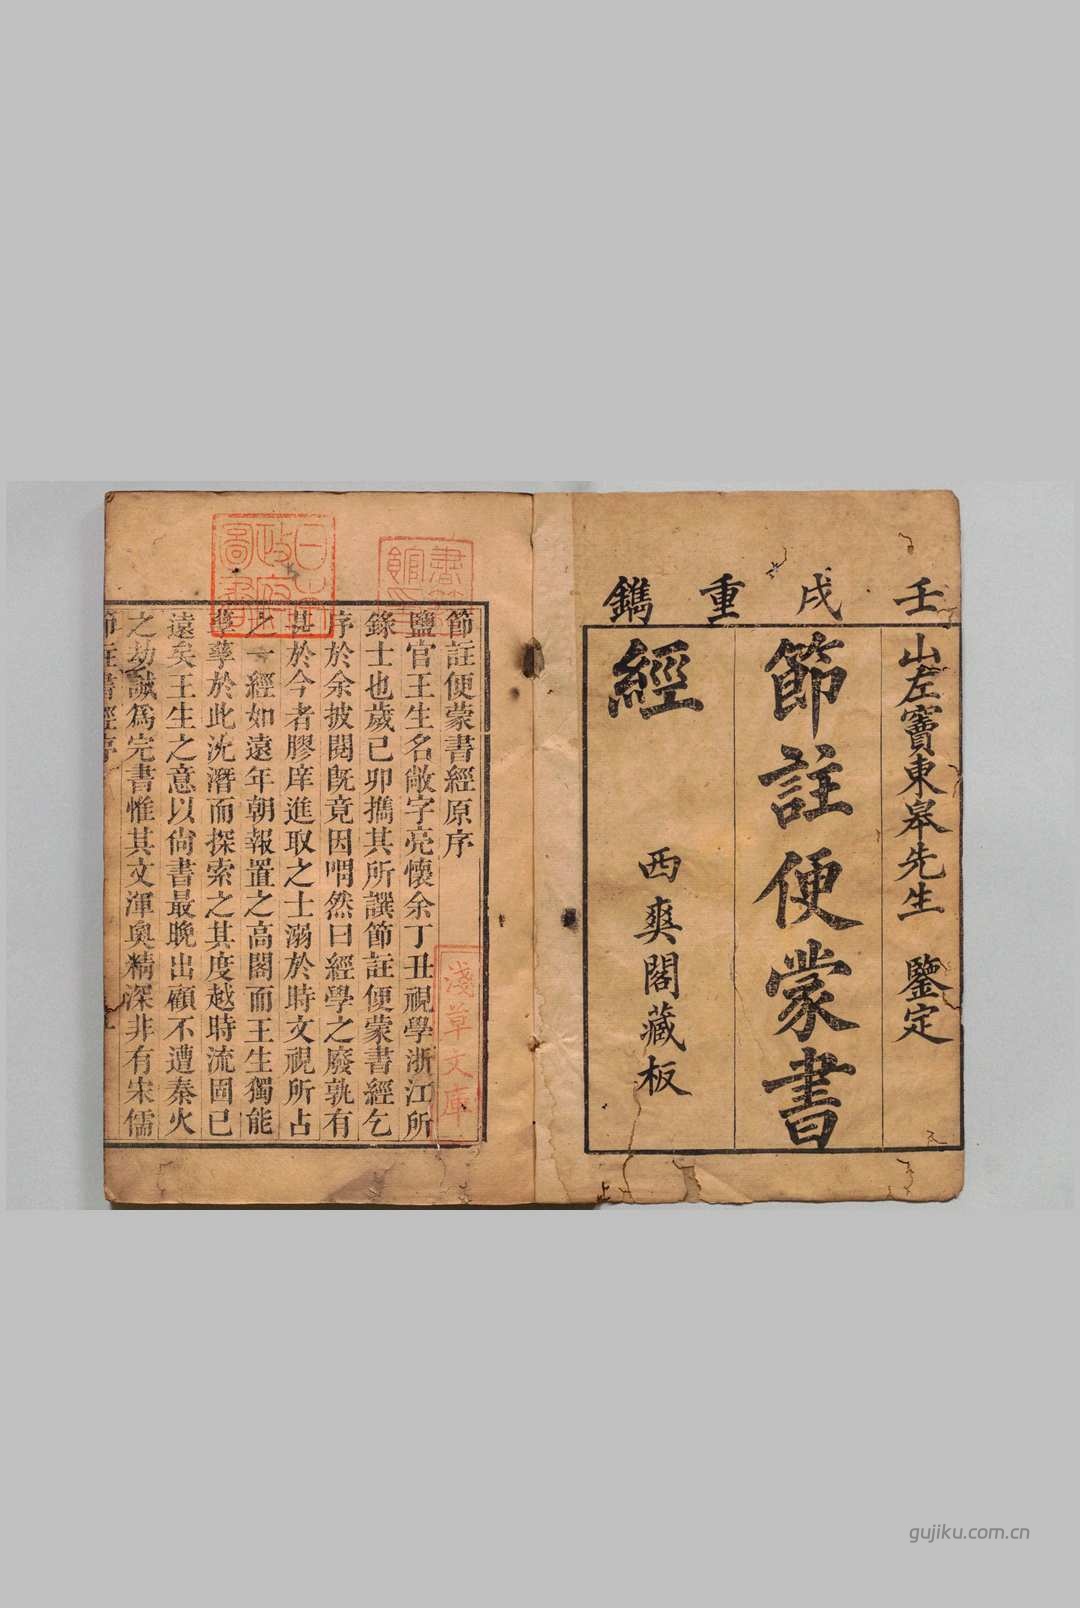 壬戌重鐫
山左竇東皋先生　鑒定
節註便蒙書
經
西爽閣藏板
節註便蒙書經原序
鹽官王生名敞字亮懷余丁丑視學浙江所
錄士也歲已卯攜其所譔節註便蒙書經乞
序於余披閱旣竟因喟然曰經學之廢孰有
甚於今者膠庠進取之士溺於時文視所占
之一經如遠年朝報置之高閣而王生獨能
孳孳於此沈潛而探索之其度越時流固已
遠矣王生之意以尙書最晚出顧不遭秦火
之劫誠爲完書惟其文渾奧精深非有宋儒
節註書經序
淺草文庫
圖書
gujiku.com.cn